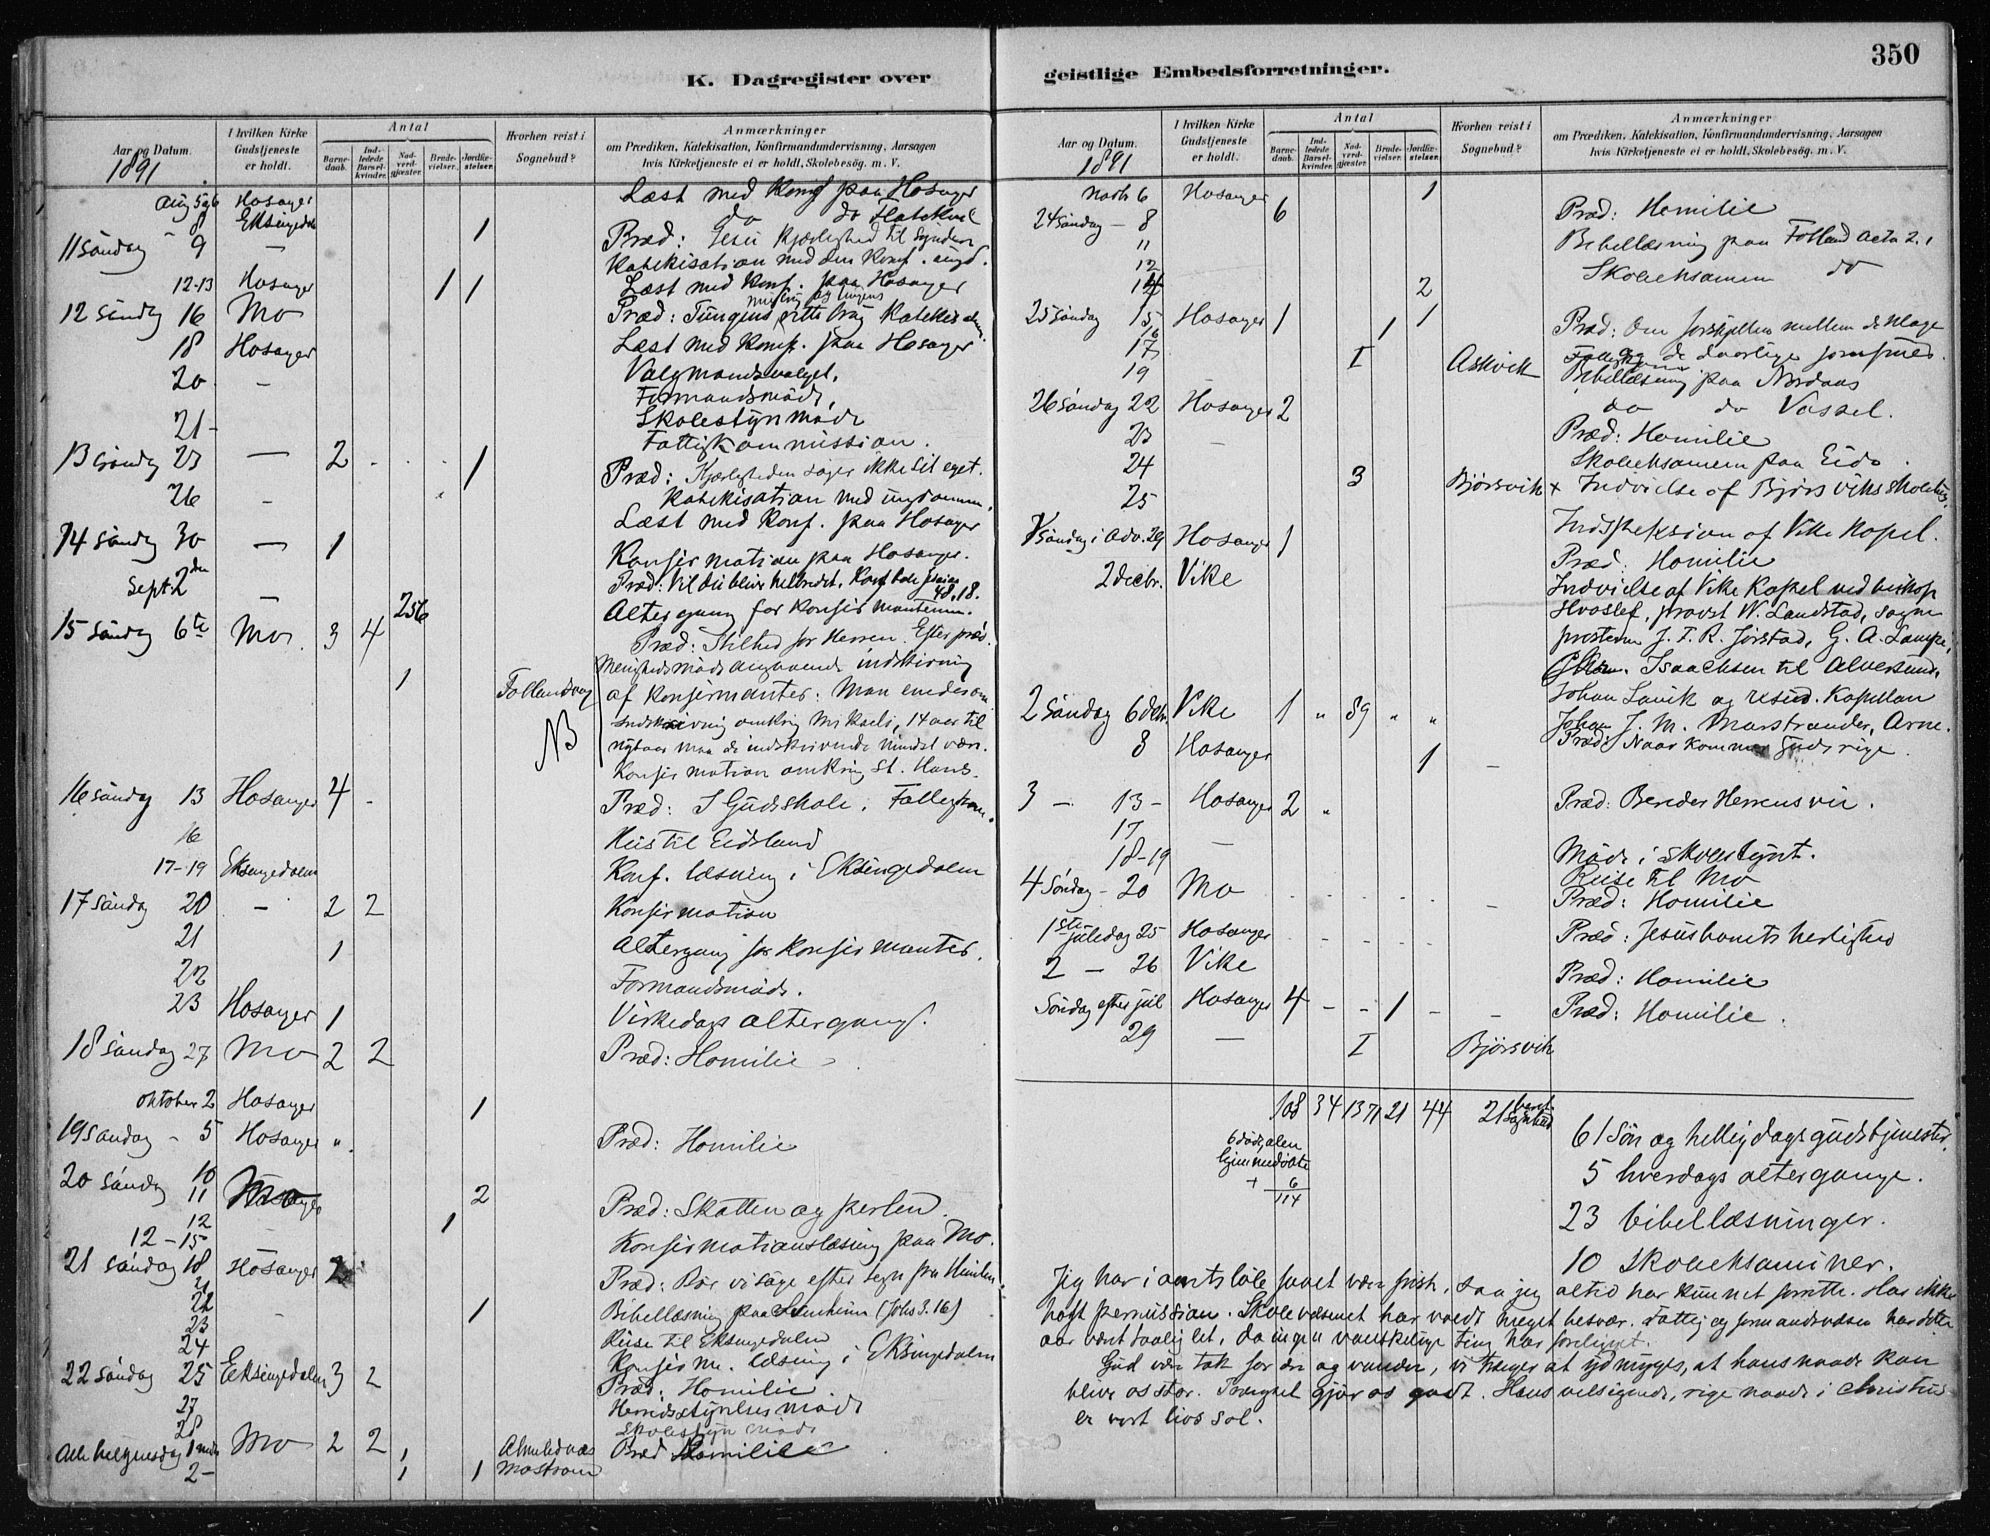 350
K. Dagregister over
Aar og Datum.
I hvilken Kirke Gudstjeneste er holdt.
Antal
Barnedaab.
Indledede Barselkvinder.
Nadverdgjæster.
Brudevielser.
Jordfæstelser.
Hvorhen reist i Sognebud?
Anmærkninger
om Prædiken, Katekisation, Konfirmandundervisning, Aarsagen
hvis Kirketjeneste ei er holdt, Skolebesøg. m. V.
1891
Aug 5 og 6 Hosanger Læst med Konf paa Hosanger
8 Eksingedalen do do
11 Søndag 9 — 1 Præd: Jesu kjærlighed til syndere
Katekisation med den Konf. ungd.
12-13 Hosanger 1 1 Læst med Konf. paa Hosanger
12 Søndag 16 Mo Præd: Tungens rette brug
18 Hosanger Læst med Konf. paa Hosanger
20 - Valgmandsvalget.
Formandsmøde,
21- Skolestyrmøde
Fattigkommission.
13 Søndag 23 — 2 1 Præd: Kjærligheden søger ikke sit eget.
Katekisation med ungdommen.
26 - Læst med Konf. paa Hosanger
14 Søndag 30 — 1 Konfirmation paa Hosanger.
Præd: Vil du blive helbredet.
48,18.
Sept. 2den — 256 Altergang for Konfirmanterne.
15 Søndag 6te Mo 3 4 Præd: Stilhed for Herren. Efter præd.
Menighedsmøde angaaende indskrivning
1 af Konfirmanter. Man enedes om
NB indskrivning omkring Mikaeli, 14 aar til
nytaar maa de indskrivende mindst være.
Konfirmation omkring St. Hans.
16 Søndag 13 Hosanger 4 - Præd: I Guds skole.
16 Reis til Eidsland
17-19 Eksingedalen Konf. læsning i Eksingedalen
17 Søndag 20 - 2 2 Konfirmation
21 1 Altergang for Konfirmanter.
22 Formandsmøde.
23 Hosanger 1 Virkedags altergang.
18 Søndag 27 Mo 2 2 Præd: Homilie
Oktober 2 Hosanger 1
19 Søndag - 5 Hosanger " Præd: Homilie
20 Søndag 10
11 2 Præd: Skatten og perlen.
12 1
12-15 Konfirmationslæsning paa Mo.
21 Søndag 18 Hosanger 2 Præd: Bør vi søge efter tegn fra Himlen.
21
22 - 1 Bibellæsning paa (Johs 3.16)
23 Reise til Eksingedalen
24 Konfirm. læsning i Eksingedalen
22 Søndag 25 Eksingedalen 3 2 Præd: Homilie.
27 Herredsstyrelses møde
28 Skolestyr møde
Alle helgensdag 1 Mo 2 2 1 Præd Homilie
2- 1 1 Mostraum
geistlige Embedsforretninger.
Aar og Datum.
I hvilken Kirke Gudstjeneste er holdt.
Antal
Barnedaab.
Indledede Barselkvinder.
Nadverdgjæster.
Brudevielser.
Jordfæstelser.
Hvorhen reist i Sognebud?
Anmærkninger
om Prædiken, Katekisation, Konfirmandundervisning, Aarsagen
hvis Kirketjeneste ei er holdt, Skolebesøg. m. V.
1891
Novb 6 Hosanger 1
24 Søndag — 8 6 Præd: Homilie
11 Bibellæsning paa Folland
12 Skoleeksamen do
14 2
25 Søndag 15 Hosanger 1 1 Præd: Om forskjellen mellem de kloge
16 1 og de daarlige jomfruer.
17 I Askvik
19 Bibellæsning paa Nordaas
do do Vassel.
26 Søndag 22 Hosanger 2 Præd: Homilie
23 — Skoleeksamen paa Eide.
24 3 Bjørsvik + Indvielse af Bjørsviks skolehus
25 Indspeksion af Vike Kapel.
1 Søndag i Adv. 29 Hosanger 1 Præd: Homilie
2 decbr. Vike Indvielse af Vike Kapel ved biskop
Hvoslef, provst W. Landstad, sogne
presterne J. F. R. Jørstad, G. A. Lampe,
Isaachsen til Alversund,
Johan Lavik og resid. Kapellan
J. M. Marstrander, Arne.
2 Søndag 6 decbr. Vike 1 " 89 " " Præd: Naar kommer Guds rige.
8 Hosanger 1 -
3 — 13 - Hosanger 2 " Præd: Bereder Herrens vei.
17 Møde i skolestyret.
18-19 — Reise til Mo
4 Søndag - 20 Mo Præd: Homilie
1ste juledag 25 Hosanger Præd: Jesusbarnets herlighed
2 — 26 Vike Præd: Homilie
Søndag efter jul Hosanger 4 - - 1 - - Præd: Homilie.
29 — I Bjørsvik
108 34 1371 21 44 21 Sognebud
61 Søn og helligdags gudstjenester
6
114
5 hverdags altergange.
23 bibellæsninger.
10 Skoleeksaminer.
Jeg har i aarets løb faaet være frisk, saa jeg altid har kunnet forrette. Har ikke
havt permission. Skolevæsenet har voldt meget besvær. Fattig og formandsvæsen har dette
aar været taalig let, da ingen vanskelige ting har foreligget.
Gud være tak for ære og vanære, vi trenger at ydmyges, at hans naade kan
blive os stor. Trængsel gjør os godt. Hans velsignede, rige naade i Christus
er vort livs sol.